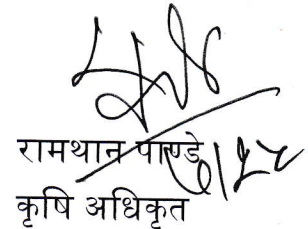 रामथान पाण्डे
कृषि अधिकृत